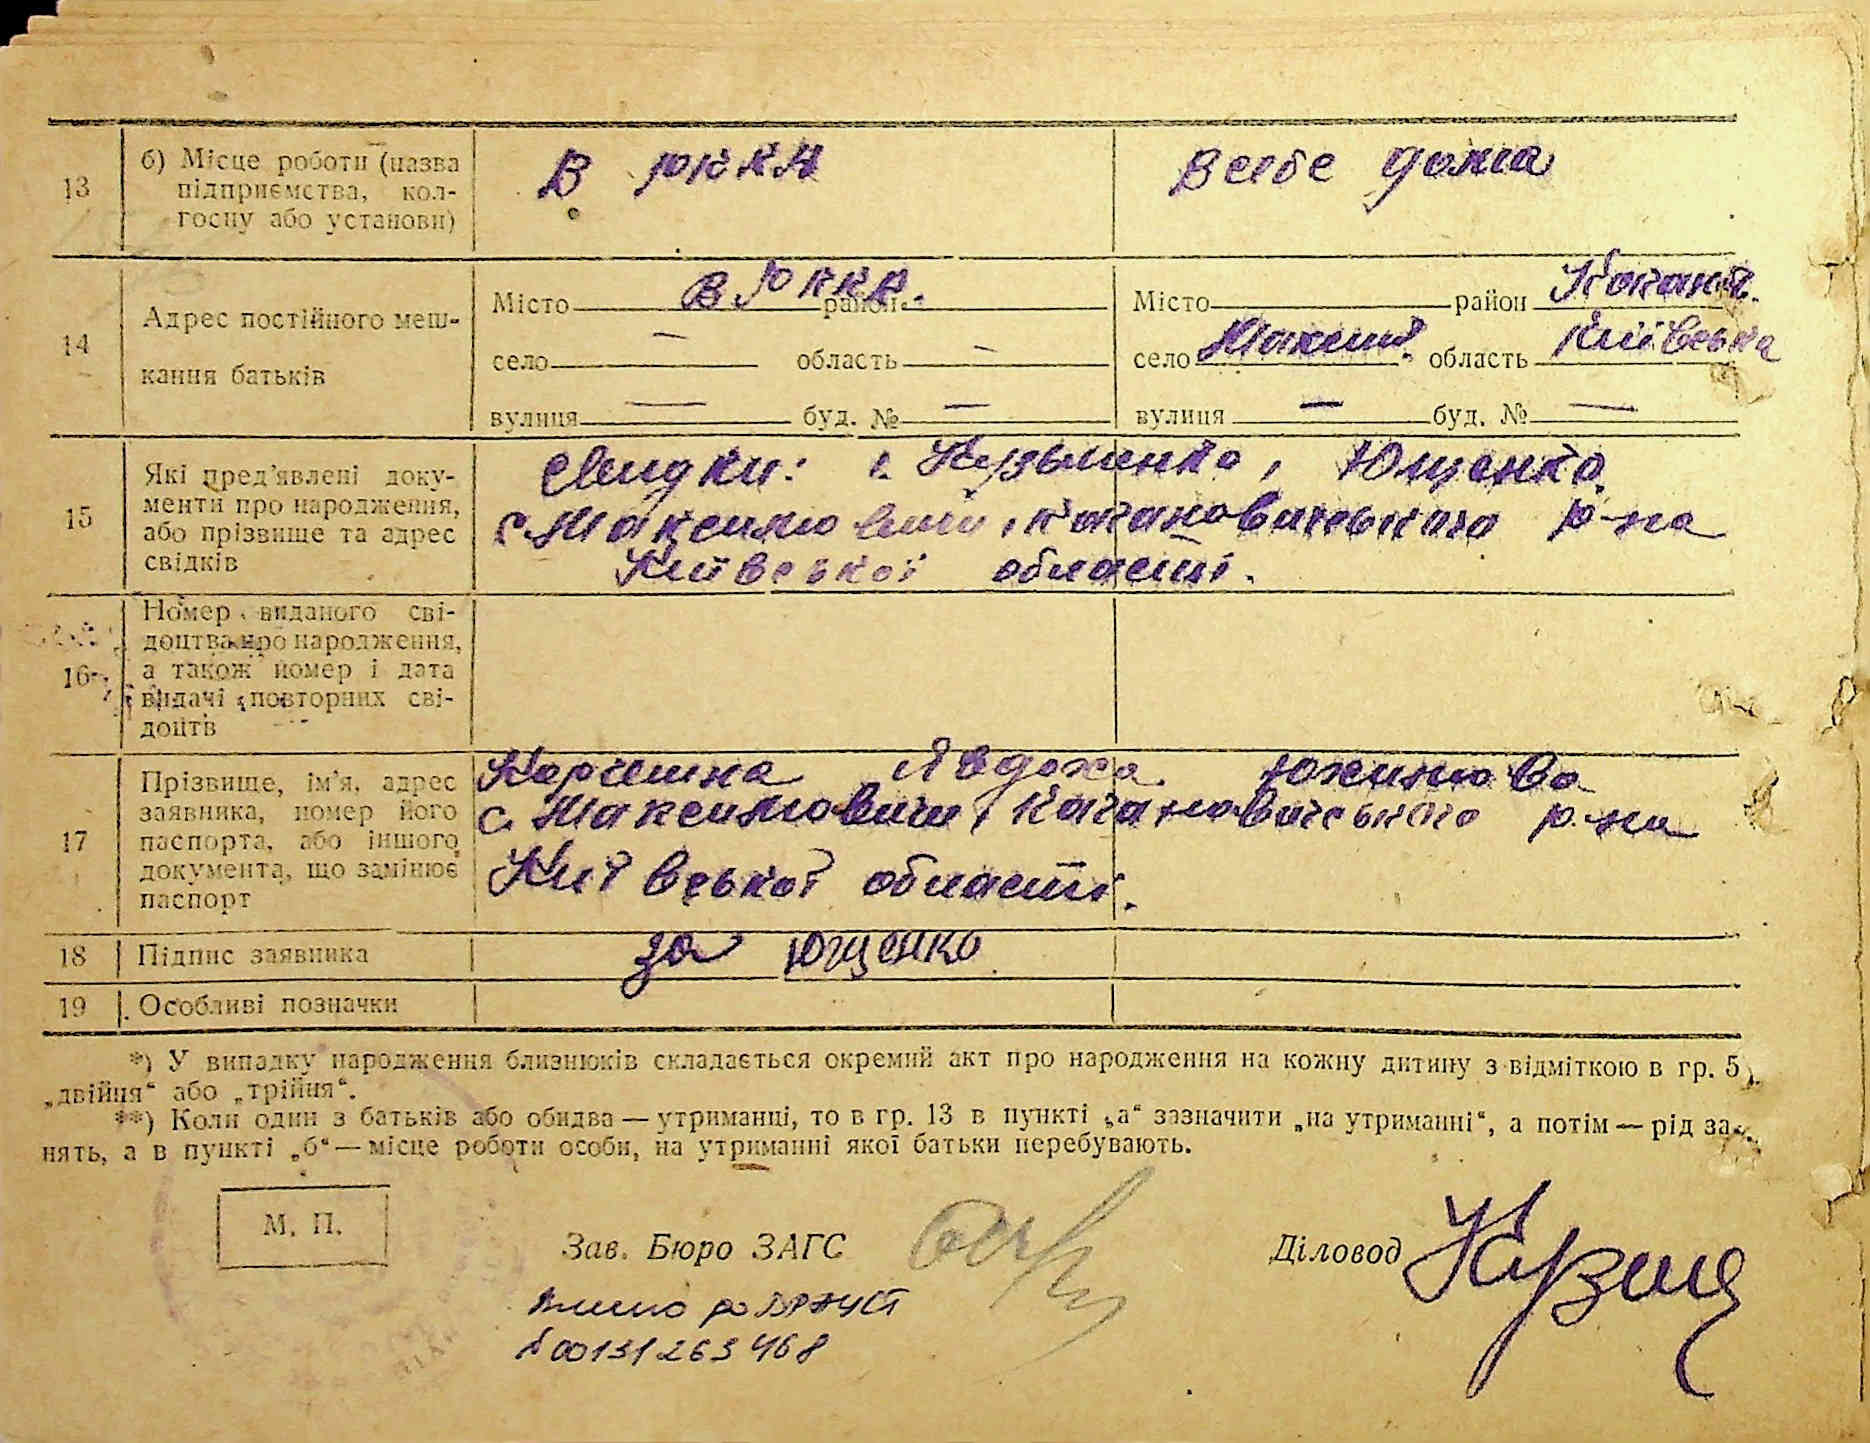 13
б) Місце роботи (назва
підприємства, кол-
госпу або установи)
в РККА
в себе дома
14
Адрес постійного меш-
кання батьків
Місто в РККА. район
село — область —
вулиця — буд. № —
Місто район Коганов.
село Максим. область Київська
вулиця — буд. № —
15
Які пред'явлені доку-
менти про народження,
або прізвище та адрес
свідків
Свидки: Кузьменко, Ющенко
с. Максимовичи, Кагановичського р-на
Київської області.
16
Номер виданого сві-
доцтва про народження,
а також номер і дата
видачі повторних сві-
доцтв
17
Прізвище, ім'я, адрес
заявника, номер його
паспорта, або іншого
документа, що замінює
паспорт
Явдоха
с. Максимовичи, Кагановичського р-на
Київської області.
18
Підпис заявника
за Ющенко
19
Особливі позначки
*) У випадку народження близнюків складається окремий акт про народження на кожну дитину з відміткою в гр. 5
„двійня“ або „трійня“.
**) Коли один з батьків або обидва — утриманці, то в гр. 13 в пункті „а“ зазначити „на утриманні“, а потім — рід за-
нять, а в пункті „б“ — місце роботи особи, на утриманні якої батьки перебувають.
М. П.
Зав. Бюро ЗАГС
Діловод
до ДРАЦСГ
00131263468